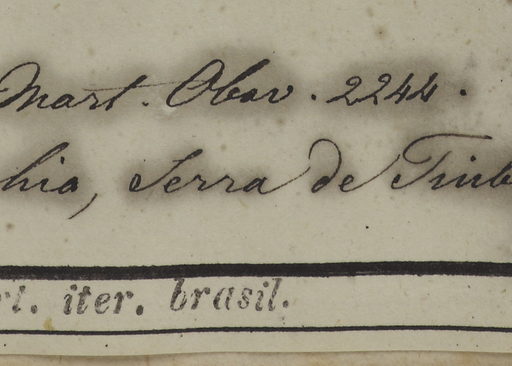 Mart. Obsv. 2244.
hia, Serra de Tiub
rt. iter. brasil.